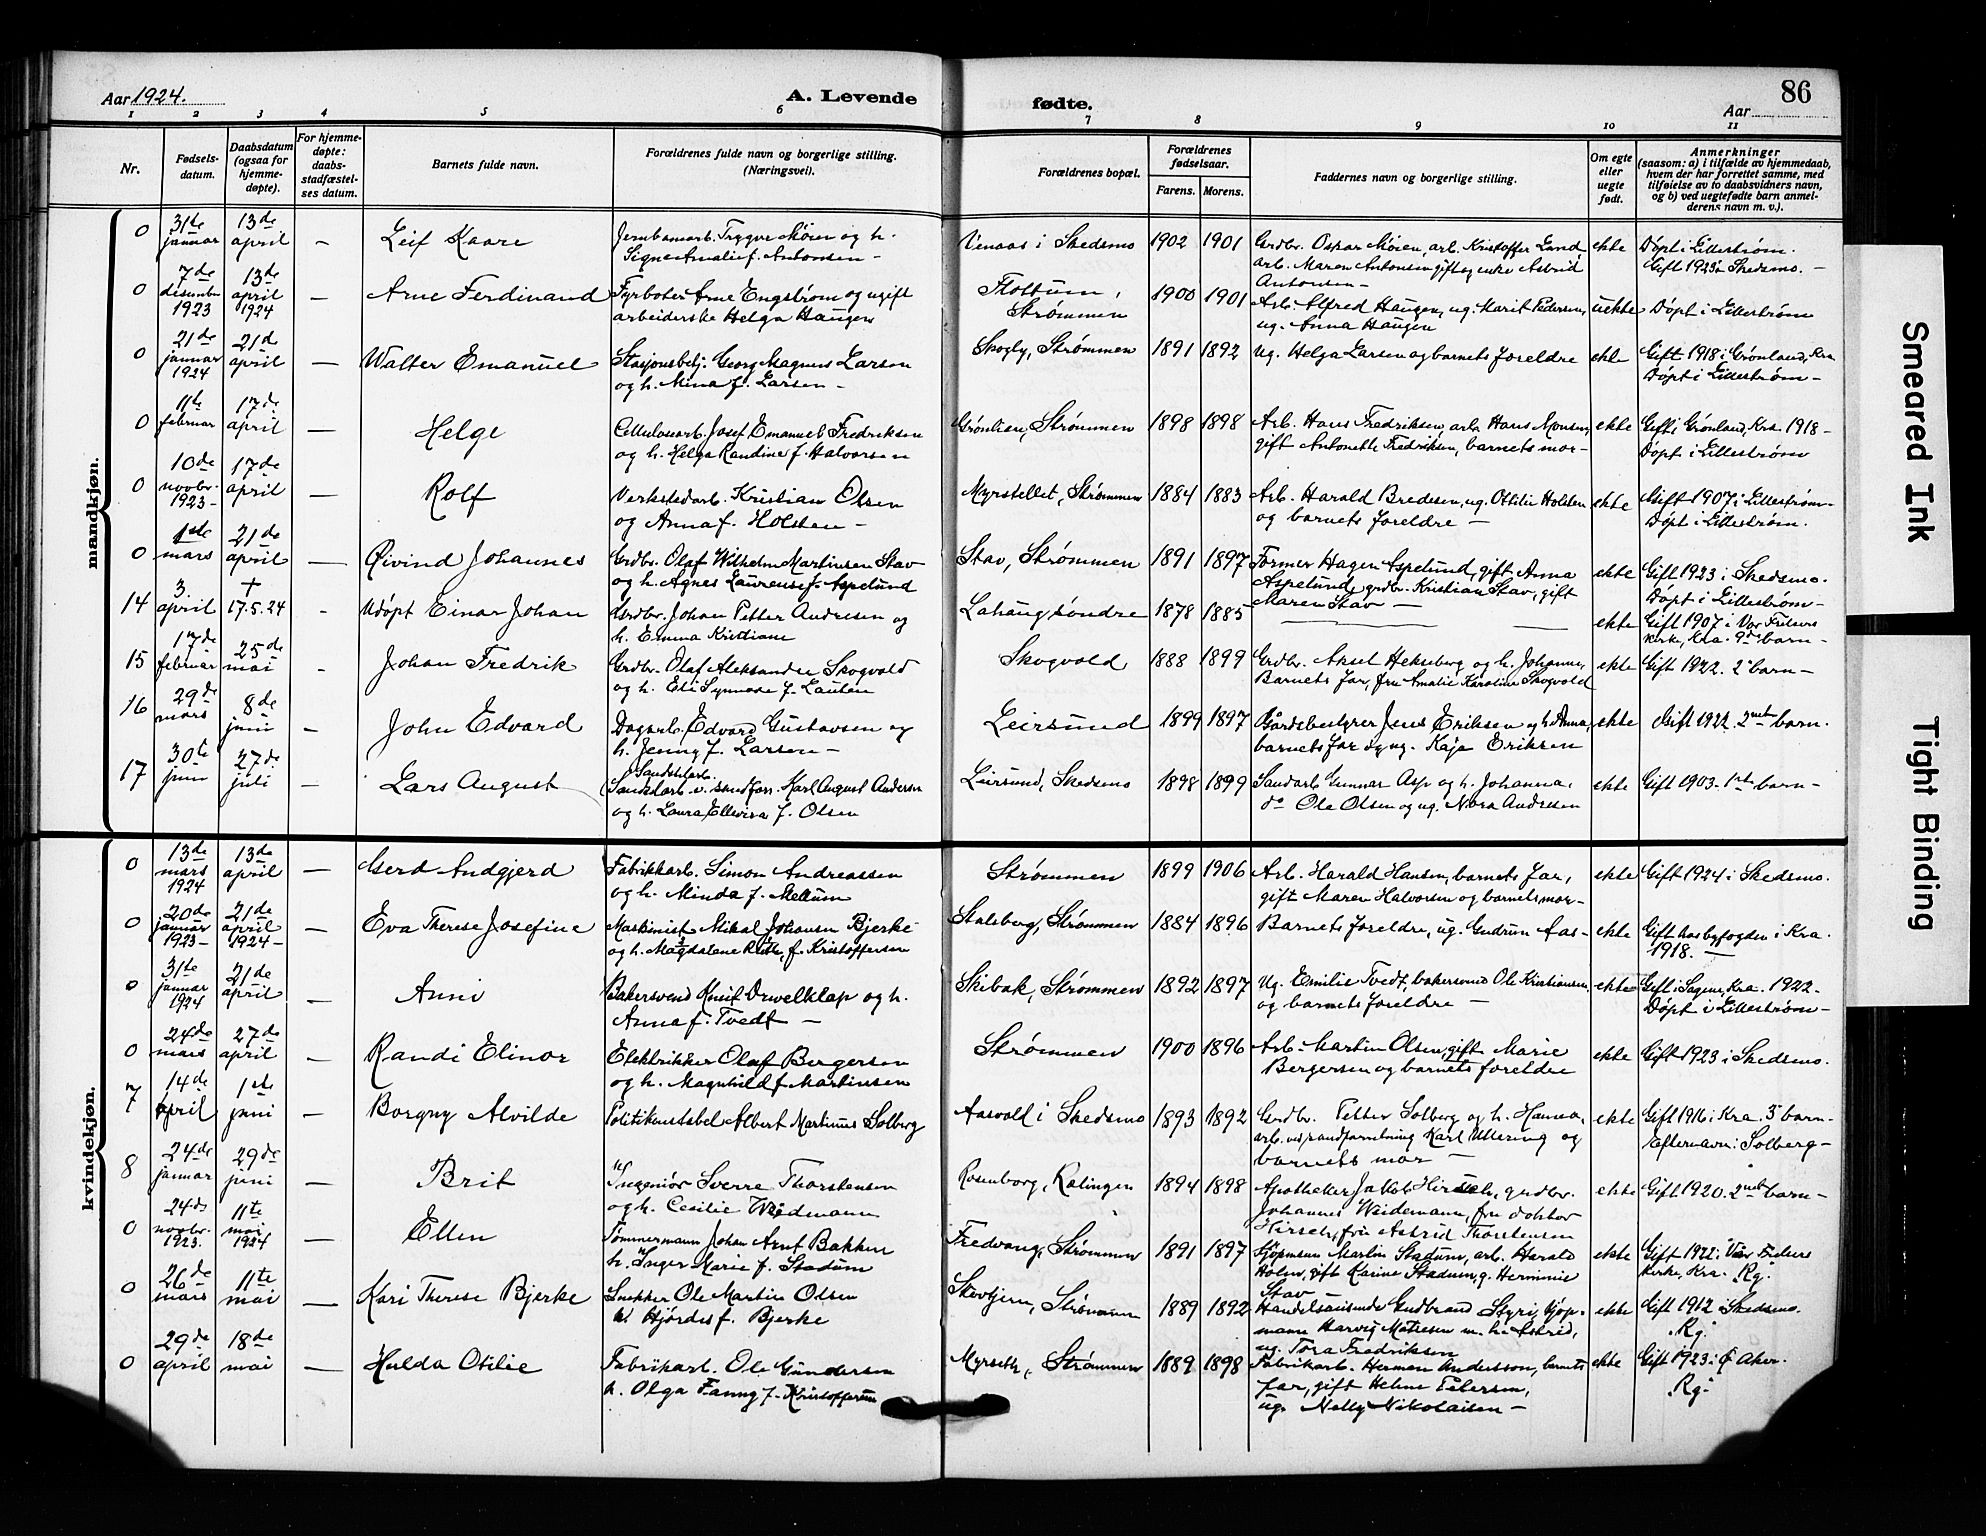 86
Aar 1924.
A. Levende
fødte.
Aar
1 2 3 4 5 6 7 8 9 10 11
Nr.
Fødsels-
datum.
Daabsdatum
(ogsaa for
hjemme-
døpte).
For hjemme-
døpte:
daabs-
stadfæstel-
ses datum.
Barnets fulde navn.
Forældrenes fulde navn og borgerlige stilling.
(Næringsvei).
Forældrenes bopæl.
Forældrenes
fødselsaar.
Farens. Morens.
Faddernes navn og borgerlige stilling.
Om egte
eller
uegte
født.
Anmerkninger
(saasom: a) i tilfælde av hjemmedaab,
hvem der har forrettet samme, med
tilføielse av to daabsvidners navn,
og b) ved uegtefødte barn anmel-
derens navn m. v.).
mandkjøn.
0 31te januar 13de april – Leif Kaare
Jernbanearb. Trygve Moien og h.
Signe Amalie f. Antonsen –
Venaas i Skedsmo 1902 1901
Grdbr. Ospar Moien, arb. Kristoffer Lund
arb. Maren Antonsen gift og enke Astrid
Antonsen –
ekte
Døpt i Lillestrøm.
Gift 1923 i Skedsmo. –
0 7de desember 1923 13de april 1924 – Arne Ferdinand
Fyrbøter Arne Engstrøm og ugift
arbeiderske Helga Haugen
Flottum,
Strømmen
1900 1901
Arb. Alfred Haugen, ug. Marit Pedersen,
ug. Anna Haugen
uekte
Døpt i Lillestrøm
0 21de januar 1924 21de april – Walter Emanuel
Stasjonsbetj. Georg Magnus Larsen
og h. Mina f. Larsen –
Skogly, Strømmen 1891 1892
Ug. Helga Larsen og barnets foreldre
ekte
Gift 1918 i Grønland, Kra
Døpt i Lillestrøm –
0 11te februar 17de april – Helge
Cellulosearb. Josef Emanuel Fredriksen
og h. Helga Randine f. Halvorsen
Grønlien, Strømmen 1898 1898
Arb. Hans Fredriksen, arb. Hans Monsen,
gift Antonette Fredriksen, barnets mor –
ekte
Gift i Grønland, Kra 1918 –
Døpt i Lillestrøm
0 10de novbr. 1923 – 17de april – Rolf
Verkstedarb. Kristian Olsen
og Anna f. Holsten –
Myrstellet, Strømmen 1884 1883
Arb. Harald Bredesen, ug. Ottilie Holsten
og barnets foreldre –
ekte
Gift 1907 i Lillestrøm –
Døpt i Lillestrøm.
0 1ste mars 21de april – Øivind Johannes
Grdbr. Olaf Wilhelm Martinsen Stav
og h. Agnes Laurense f. Aspelund
Stav, Strømmen 1891 1897
Former Hagen Aspelund, gift Anna
Aspelund, grdbr. Kristian Stav, gift
Maren Stav –
ekte
Gift 1923 i Skedsmo.
Døpt i Lillestrøm –
14 3. april + 17.5.24 – Udøpt Einar Johan
Grdbr. Johan Petter Andresen og
h. Emma Kristiane
Lahaug søndre 1878 1885
ekte
Gift 1907 i Vor Frelsers
kirke, Kra. 9de barn –
15 17de februar 25de mai – Johan Fredrik
Grdbr. Olaf Aleksander Skogvold
og h. Eli Synnøve f. Lauten
Skogvold 1888 1899
Grdbr. Aksel Hekseberg og h. Johanne,
Barnets far, fru Amalie Karoline Skogvold
ekte
Gift 1922. 2 barn –
16 29de mars 8de juni – John Edvard
Dagarb. Edvard Gustavsen og
h. Jenny f. Larsen –
Leirsund 1899 1897
Gårdsbestyrer Jens Eriksen og h. Anna,
barnets far og ug. Kaja Eriksen
ekte
Gift 1922. 2net barn.
17 30te juni 27de juli – Lars August
Sandarb. v. sandforr. Karl August Andersen
og h. Laura Ellevira f. Olsen
Leirsund, Skedsmo 1898 1899
Sandarb. Gunnar Asp og h. Johanna,
do Ole Olsen og ug. Nora Andresen
ekte
Gift 1903. 1ste barn –
kvindekjøn.
0 13de mars 1924 13de april – Gerd Andgjerd
Fabrikkarb. Simon Andreassen
og h. Minda f. Mellum
Strømmen 1899 1906
Arb. Harald Hansen, barnets far,
gift Maren Halvorsen og barnets mor –
ekte
Gift 1924 i Skedsmo.
0 20de januar 1923 – 21de april 1924 – – Eva Therese Josefine
Maskinist Mikal Johansen Bjerke
og h. Magdalene Ruth, f. Kristoffersen
Stalsberg, Strømmen 1884 1896
Barnets foreldre, ug. Gudrun Aas –
ekte
Gift hos byfogden i Kra.
1918. –
0 31te januar 1924 21de april – Anni
Bakersvend Knuif Drwelklap og h.
Anna f. Tvedt –
Skibak, Strømmen 1892 1897
Ug. Emilie Tvedt, bakersvend Ole Kristiansen,
og barnets foreldre –
ekte
Gift i Sagene, Kra. 1922 –
Døpt i Lillestrøm –
0 24de mars 27de april – Randi Elinor
Elektrikker Olaf Bergersen
og h. Magnhild f. Martinsen
Strømmen 1900 1896
Arb. Martin Olsen, gift Marie
Bergersen og barnets foreldre
ekte
Gift 1923 i Skedsmo.
7 14de april 1ste juni – Borgny Alvilde
Politikonstabel Albert Martinius Solberg
Aasvold i Skedsmo 1893 1892
Grdbr. Petter Solberg og h. Hanna,
arb. ved sandforretning Karl Uttering og
barnets mor –
ekte
Gift 1916 i Kra. 3 barn –
Efternavn: Solberg –
8 24de januar 29de juni – Brit
Ingeniør Sverre Thorstensen
og h. Cecilie Wiedmann
Rosenborg, Rælingen 1894 1898
Apotheker Jakob Hirsch, grdbr.
Johannes Weidemann, fru doktor
Hirsch, fru Astrid Thorstensen
ekte
Gift 1920. 2net barn –
0 24de novbr. 1923. 11te mai 1924 – Ellen
Tømmermann Johan Arnt Bakken
h. Inger Marie f. Stadum
Fredvang, Strømmen 1891 1897
Kjøpmann Martin Stadum, arb. Harald
Holm, gift Karine Stadum, g. Herminie
Stav –
ekte
Gift 1922 i Vår Frelsers
kirke, Kra. "Rg."
0 26de mars 11te mai – Kari Therese Bjerke
Snekker Ole Martin Olsen
h. Hjørdis f. Bjerke
Skovhjem, Strømmen 1889 1892
Handelsreisende Gudbrand Styri, kjøp-
mann Harvig Matiesen m. h. Astrid,
ug. Tora Fredriksen
ekte
Gift 1912 i Skedsmo.
"Rg."
0 29de april 18de mai – Hulda Otilie
Fabrikarb. Ole Gundersen
h. Olga Fanny f. Kristoffersen
Myrseth, Strømmen 1889 1898
Fabrikarb. Herman Anderssen, barnets
far, gift Helene Petersen,
ug. Nelly Nikolaisen –
ekte
Gift 1923 i Ø. Aker.
"Rg."
Smeared Ink
Tight Binding